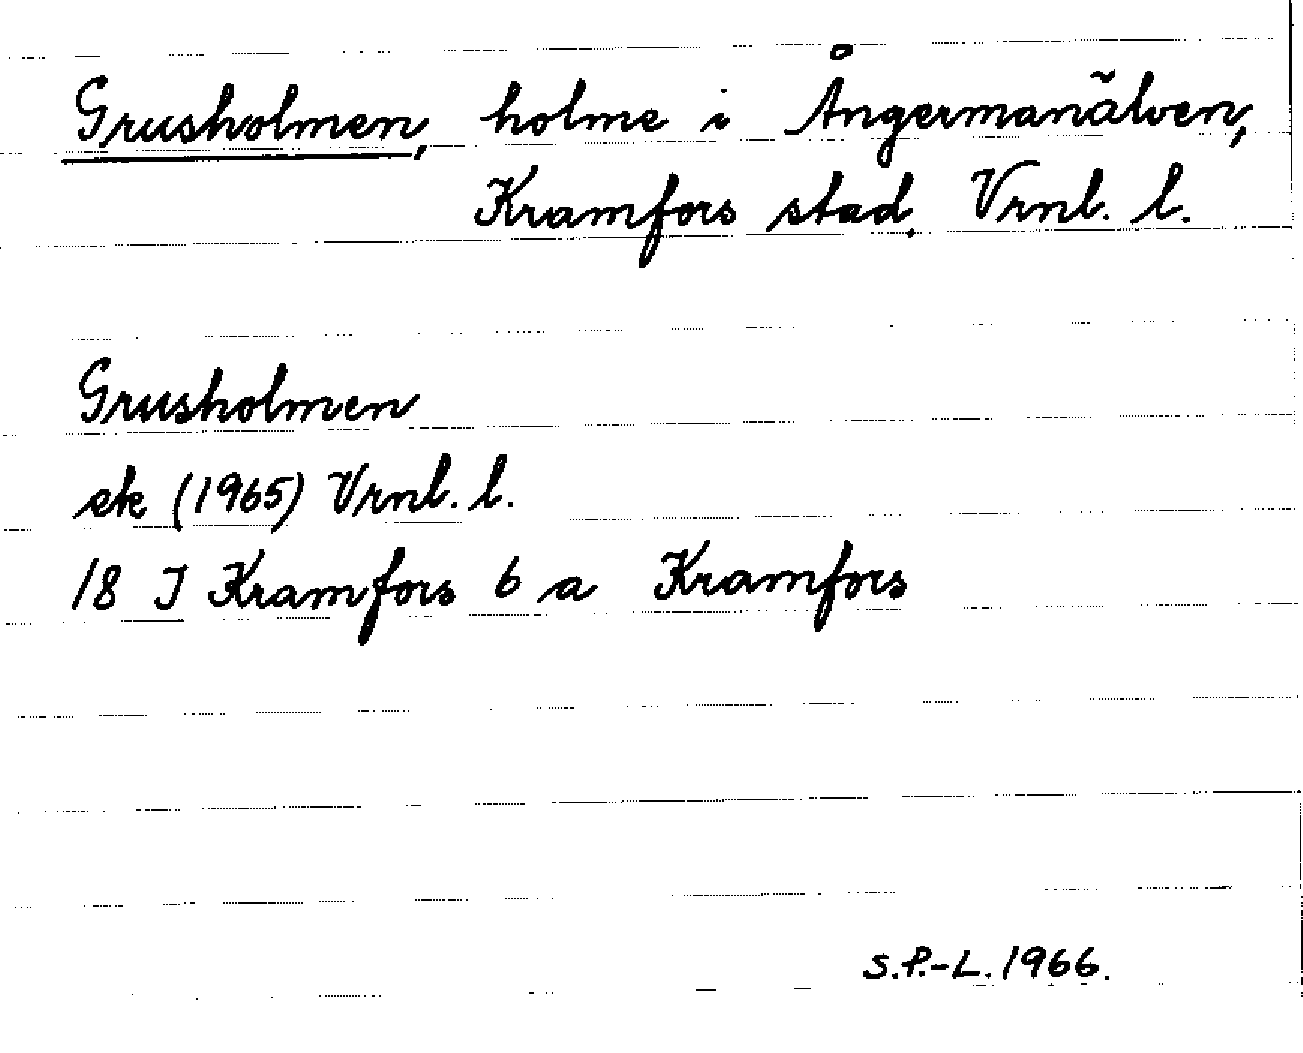 Grusholmen, holme i Ångermanälven,
Kramfors stad, Vrnl. l.
Grusholmen
ek (1965) Vrnl. l.
18 I Kramfors 6 a Kramfors
S.P.-L. 1966.